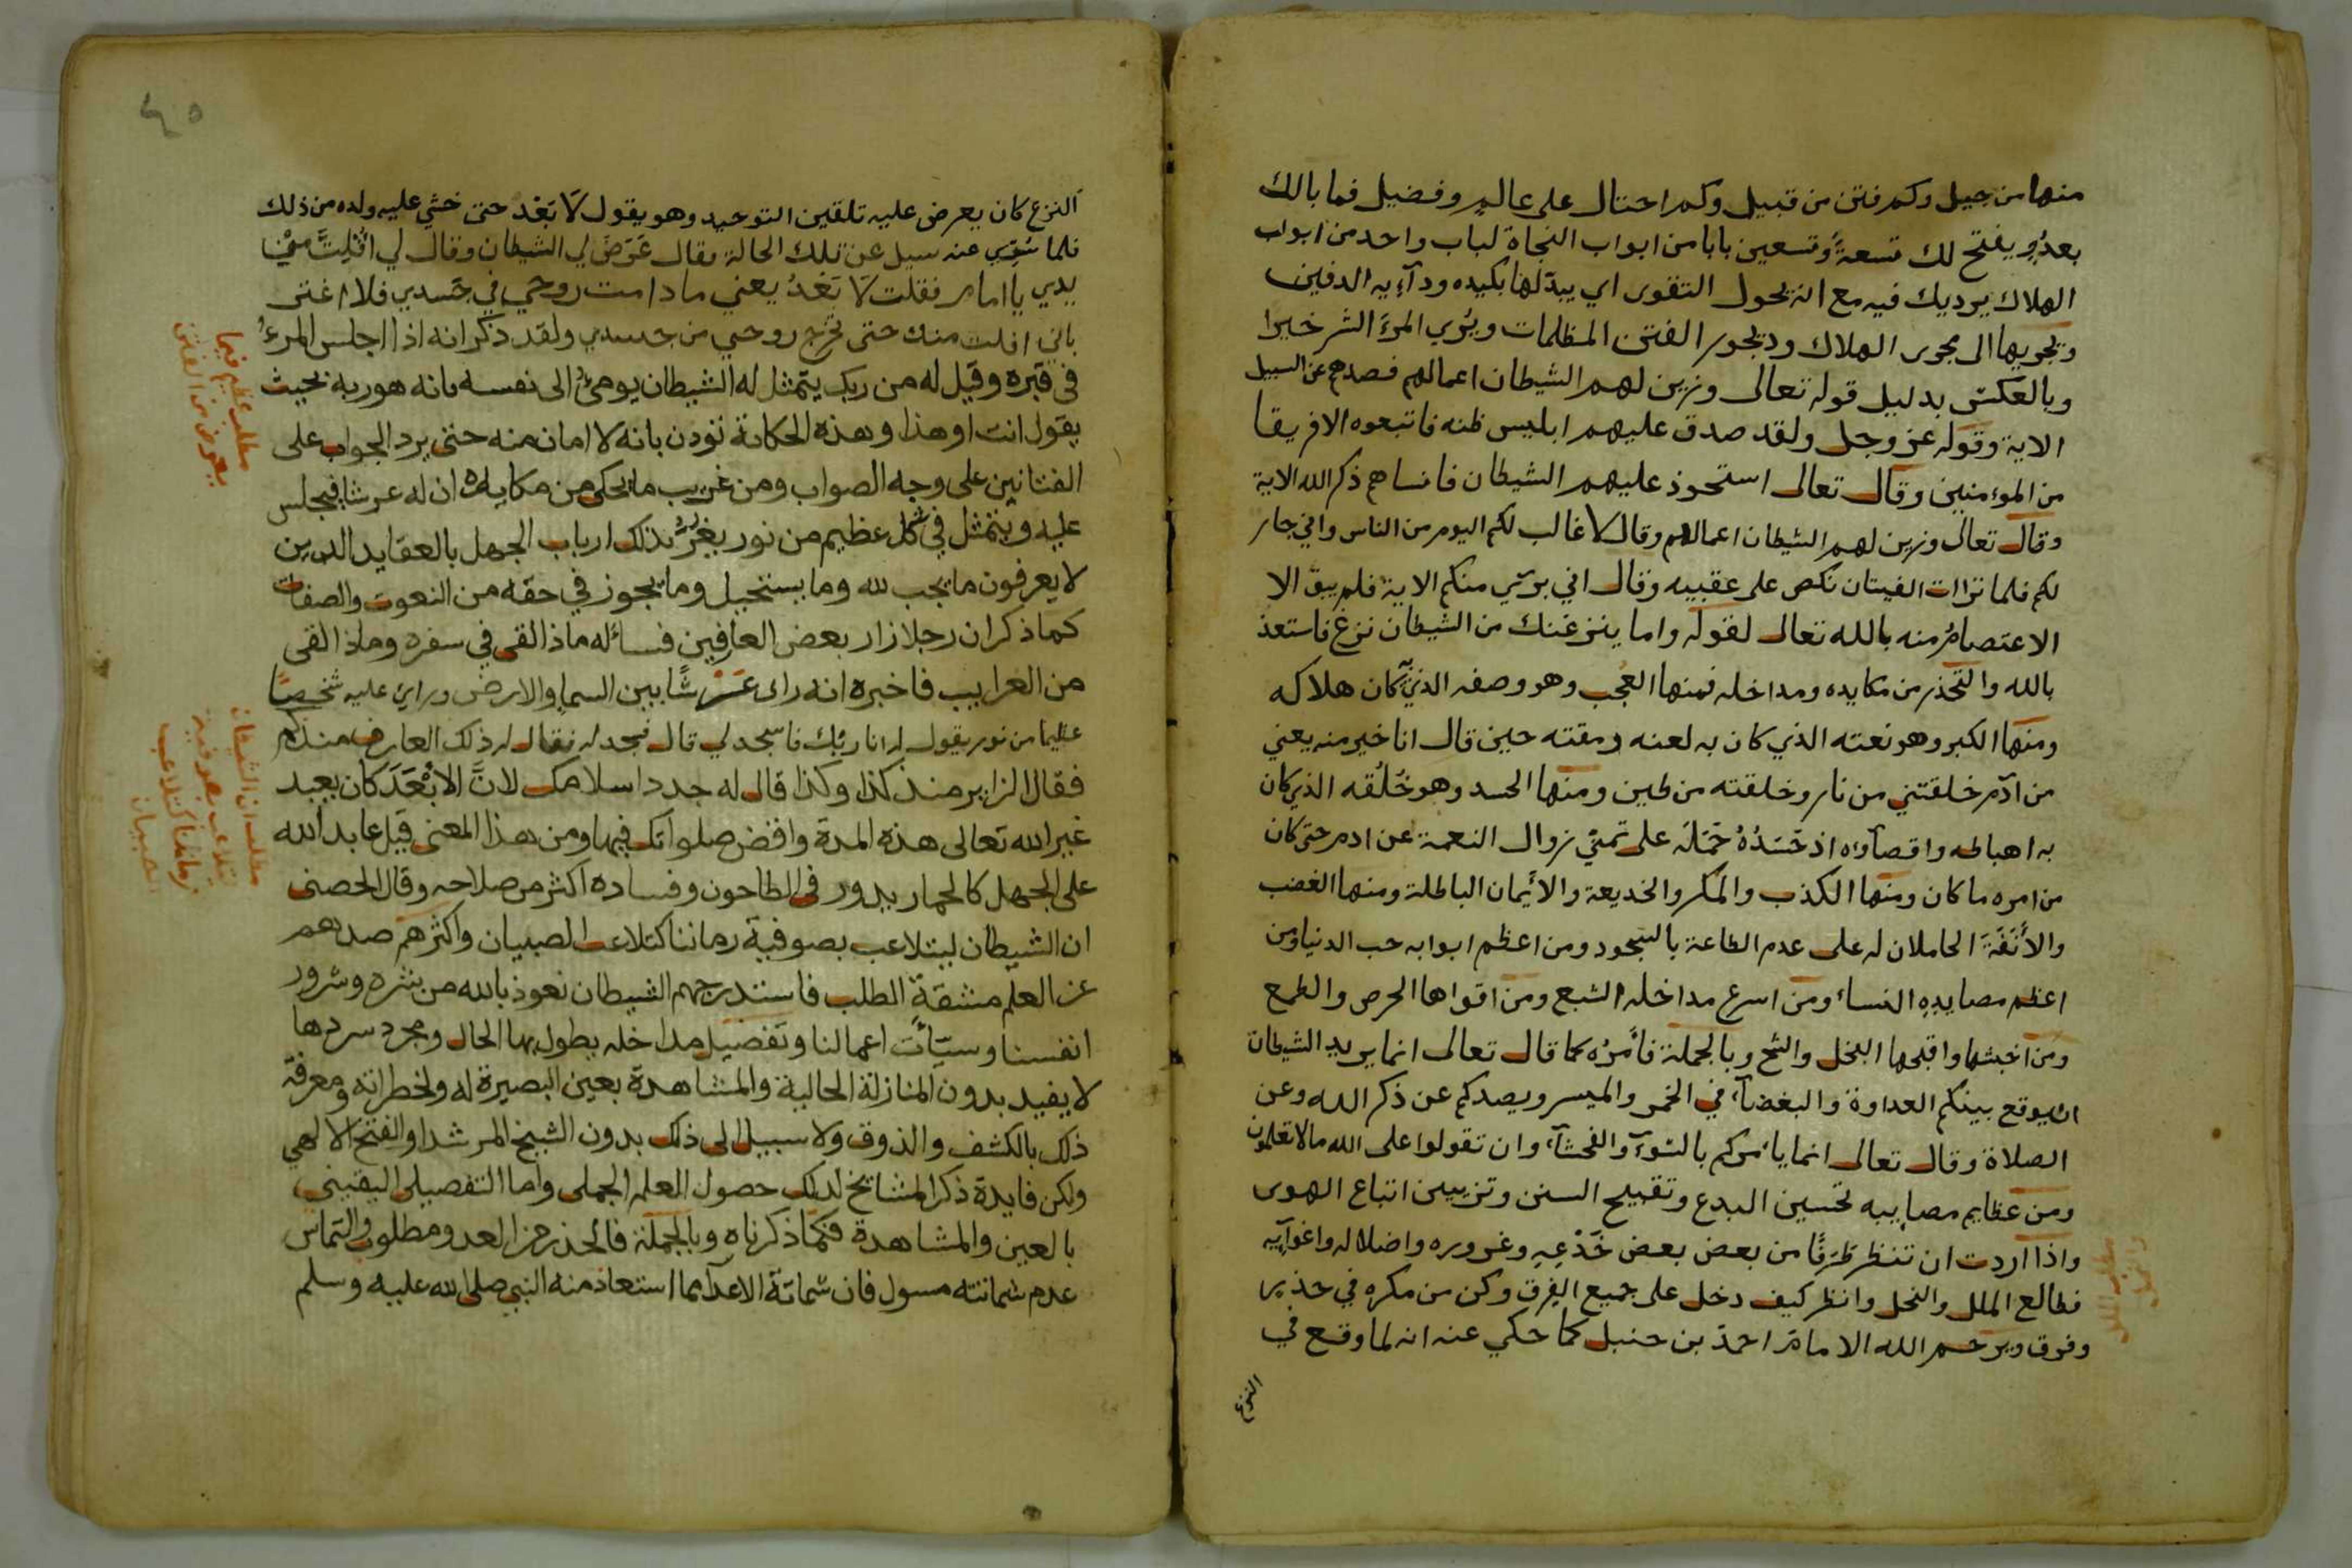 منها من جيل وكم فتن من قبيل وكم احتال على عالم وفضيل فما بالك
بعدُوٍ يفتح لك تسعةً وتسعين بابا من ابواب النجاة لباب واحد من ابواب
الهلاك يرديك فيه مع انه يحول التقوى اي يبدّلها بكيده ودآءيه الدفين
ويجريها الى مجرى الهلاك وديجور الفتن المظلمات ويُري المرءَ الشر خيرا
وبالعكس بدليل قوله تعالى وزين لهم الشيطان اعمالهم فصدهم عن السبيل
الاية وقوله عز وجل ولقد صدق عليهم ابليس ظنه فاتبعوه الا فريقا
من المؤمنين وقال تعالى استحوذ عليهم الشيطان فانساهم ذكر الله الاية
وقال تعالى وزين لهم الشيطان اعمالهم وقال لا غالب لكم اليوم من الناس واني جار
لكم فلما تراات الفيتان نكص على عقبيه وقال اني بريء منكم الاية فلم يبق الا
الاعتصامُ منه بالله تعالى لقوله واما ينزغنك من الشيطان نزغ فاستعذ
بالله والتحذر من مكايده ومداخله فمنها العُجب وهو وصفه الذي كان هلاكه
ومنها الكبر وهو نعته الذي كان به لعنه ومقته حين قال انا خير منه يعني
من آدم خلقتني من نار وخلقته من طين ومنها الحسد وهو خُلُقه الذي كان
به اهباطه واقصآؤه اذ حَسَدُهُ حَمَلَه على تمنّي زوال النعمة عن ادم حتى كان
من امره ما كان ومنها الكذب والمكر والخديعة والأيمان الباطلة ومنها الغضب
والأنَفَةَ الحاملان له على عدم الطاعة بالسجود ومن اعظم ابوابه حب الدنيا ومن
اعظم مصايده النساء ومن اسرع مداخله الشبع ومن اقواها الحرص والطمع
ومن اخبثها واقبحها البخل والشح وبالجملة فأمرُه كما قال تعالى انما يريد الشيطان
ان يوقع بينكم العداوة والبغضآء في الخمر والميسر ويصدكم عن ذكر الله وعن
الصلاة وقال تعالى انما يأمركم بالسّوءِ والفحشآء وان تقولوا على الله ما لا تعلمون
ومن عظايم مصايبه تحسين البدع وتقبيح السنن وتزيين اتباع الهوى
واذا اردت ان تنظر طَرَفًا من بعض بعض خَدْعِهِ وغروره واضلاله واغوآيه
فطالع الملل والنحل وانظر كيف دخل على جميع الفِرق وكن من مكره في حذير
وفرق ويرحم الله الامام احمد بن حنبل كما حكي عنه انه لما وقع في
النزع
٤٥
النزع كان يعرض عليه تلقين التوحيد وهو يقول لَا بَعْد حتى خشي عليه ولده من ذلك
فلما سُرِّي عنه سيل عن تلك الحالة فقال عَرَضَ لي الشيطان وقال لي افلِتَّ من
يدي يا امام فقلت لَا بَعْدُ يعني ما دامت روحي في جسدي فلا اغتر
باني افلت منك حتى تخرج روحي من جسدي ولقد ذكر انه اذا اجلس المرءُ
في قبره وقيل له من ربك يتمثل له الشيطان يومئُ الى نفسه بانه هو ربه بحيث
يقول انت او هذا وهذه الحكاية تؤذن بانه لا امان منه حتى يرد الجواب على
الفتانين على وجه الصواب ومن غريب ما يحكى من مكايده ان له عرشا فيجلس
عليه ويتمثل في شكل عظيم من نور يغرُّ بذلك ارباب الجهل بالعقايد الذين
لا يعرفون ما يجب لله وما يستحيل وما يجوز في حقه من النعوت والصفات
كما ذكر ان رجلا زار بعض العارفين فسأله ماذا القى في سفره وماذا القى
من الغرايب فاخبره انه راى عَرْشًا بين السماء والارض وراى عليه شخصًا
عظيما من نور يقول له انا ربك فاسجد لي قال فسجد له فقال له ذلك العارف منذ كم
فقال الزاير منذ كذا وكذا قال له جدد اسلامك لانَّ الابْعَدَ كان يعبد
غير الله تعالى هذه المدة واقض صلواتك فيها ومن هذا المعنى قيل عابد الله
على الجهل كالحمار يدور في الطاحون وفساده اكثر من صلاحه وقال الحصني
ان الشيطان ليتلاعب بصوفية زماننا كتلاعب الصبيان واكثرهم صدهم
عن العلم مشقةُ الطلب فاستدرجهم الشيطان نعوذ بالله من شره وشرور
انفسنا وسيّأت اعمالنا وتفصيل مداخله يطول بها الحال ومجرد سردها
لا يفيد بدون المنازلة الحالية والمشاهدة بعين البصيرة له ولخطراته ومعرفة
ذلك بالكشف والذوق ولا سبيل الى ذلك بدون الشيخ المرشد او الفتح الالهي
ولكن فايدة ذكر المشايخ لذلك حصول العلم الجملي واما التفصيلي اليقيني
بالعين والمشاهدة فكما ذكرناه وبالجملة فالحذر من العدو مطلوب والتماس
عدم شماتته مسول فان شماتة الاعدآء مما استعاذ منه النبي صلى الله عليه وسلم
مطلب عظيم فيما
يعرض من الفتن
مطلب ان الشيطان
زماننا كتلاعب
الصبيان